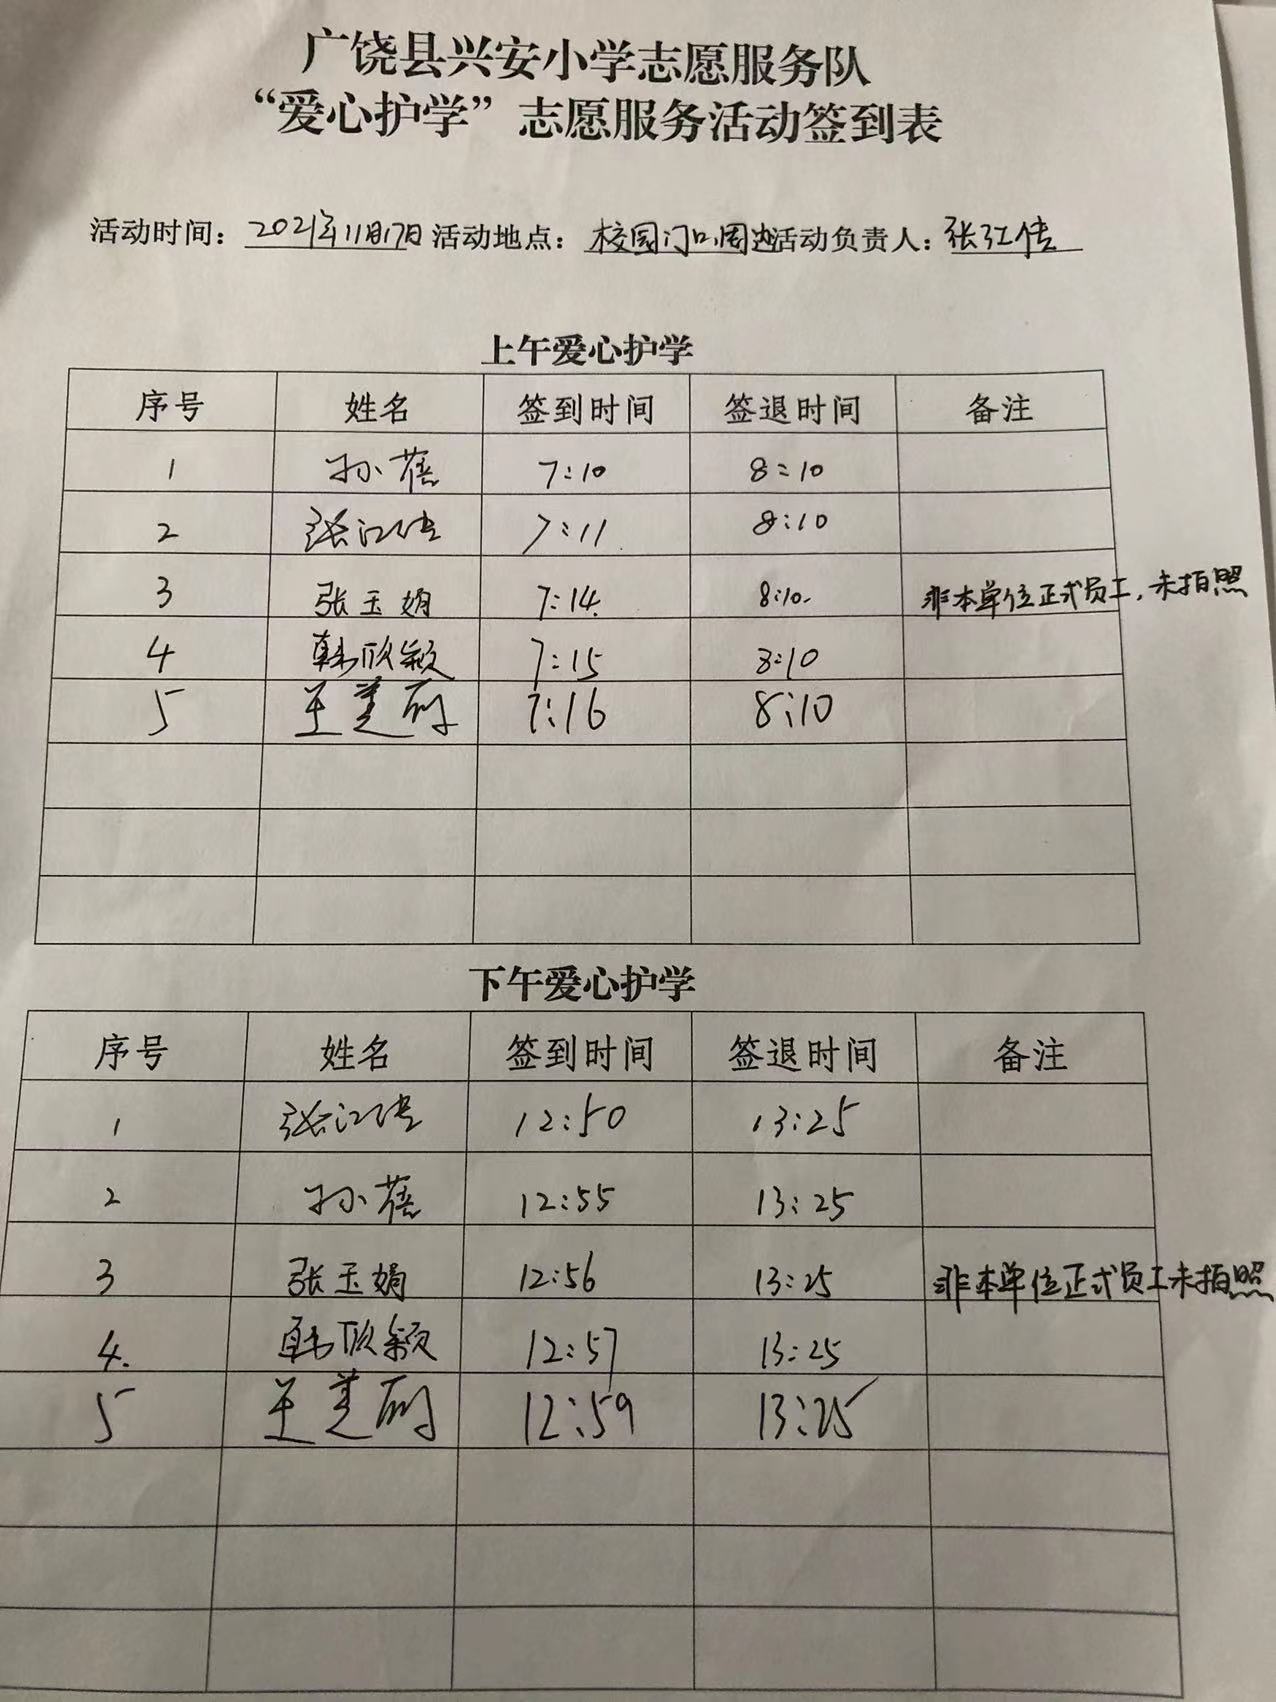 广饶县兴安小学志愿服务队
“爱心护学”志愿服务活动签到表
活动时间：2021年11月17日 活动地点：校园门口周边 活动负责人：张江佳
上午爱心护学
序号 姓名 签到时间 签退时间 备注
1 孙蓓 7:10 8:10
2 张江佳 7:11 8:10
3 张玉娟 7:14 8:10 非本单位正式员工，未拍照
4 韩欣颖 7:15 8:10
5 王美丽 7:16 8:10
下午爱心护学
序号 姓名 签到时间 签退时间 备注
1 张江佳 12:50 13:25
2 孙蓓 12:55 13:25
3 张玉娟 12:56 13:25 非本单位正式员工未拍照
4. 韩欣颖 12:57 13:25
5 王美丽 12:59 13:25